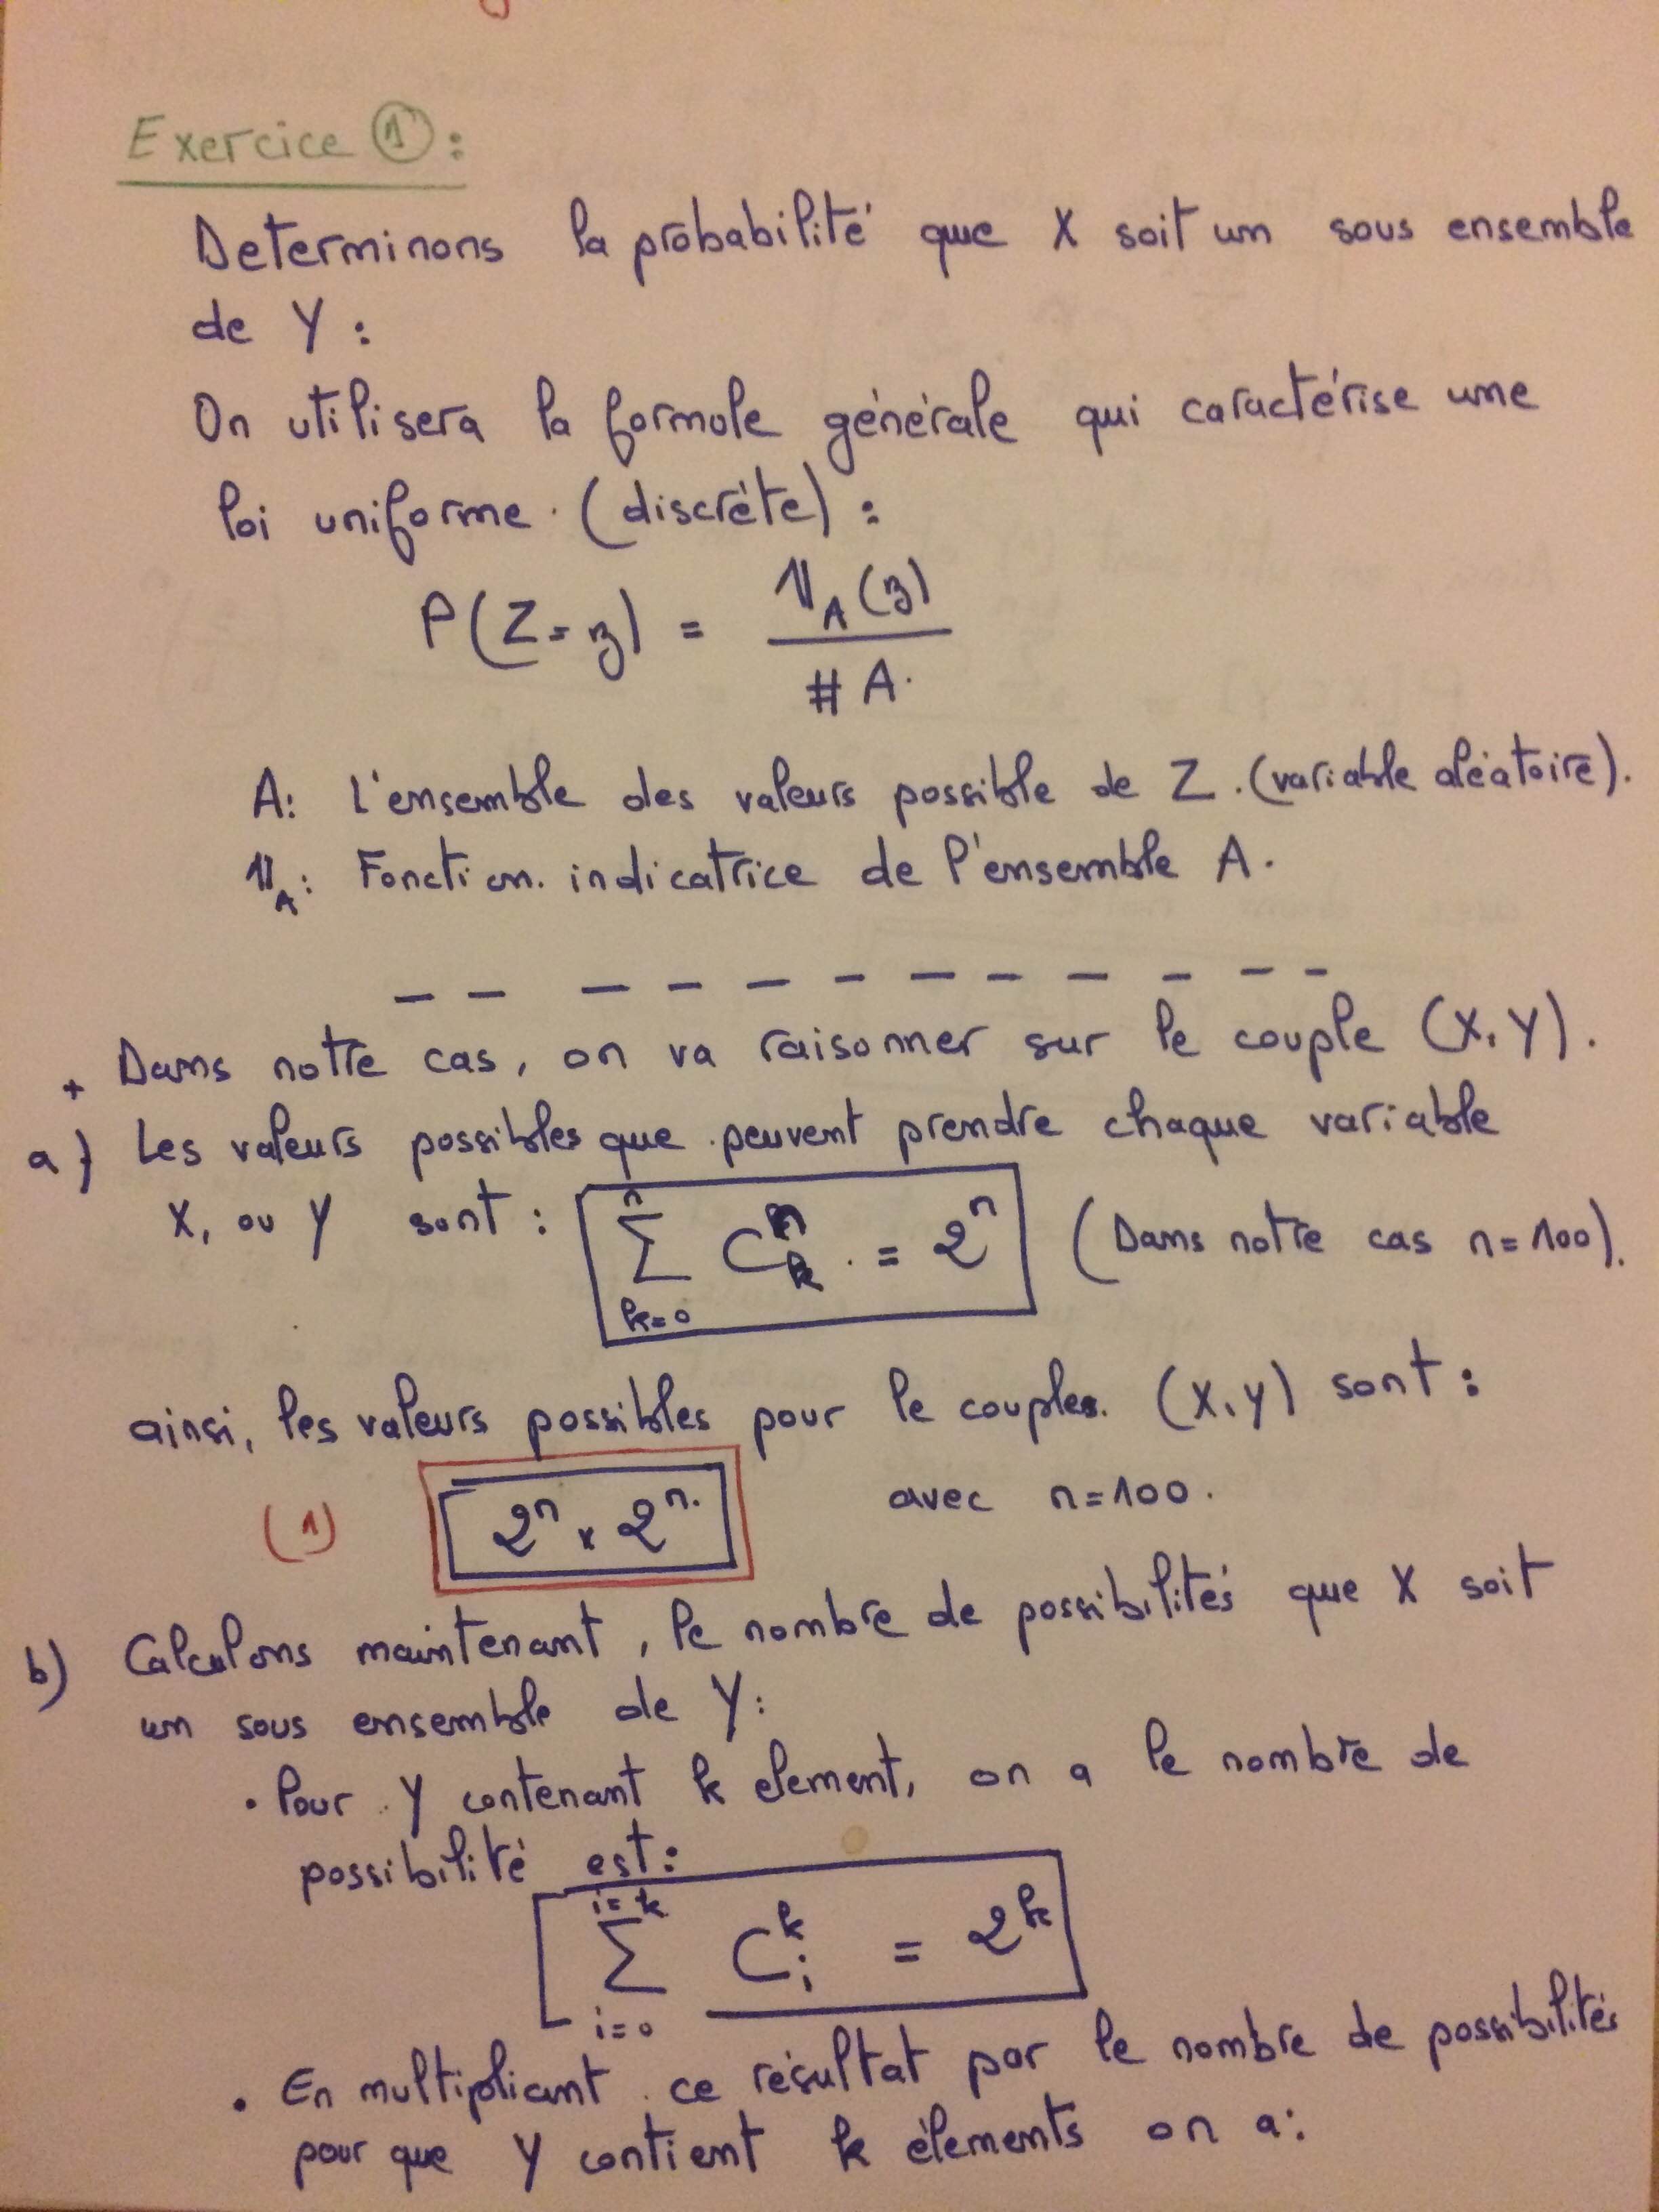 Exercice ① :
Determinons la probabilité que X soit un sous ensemble
de Y :
On utilisera la formule générale qui caractérise une
loi uniforme. (discrète) :
P(Z=z) = 𝟙_A(z) / # A.
A: L'ensemble des valeurs possible de Z. (variable aléatoire).
𝟙_A: Fonction. indicatrice de l'ensemble A.
+ Dans notre cas, on va raisonner sur le couple (X,Y).
a) Les valeurs possibles que peuvent prendre chaque variable
X, ou Y sont : ∑_{k=0}^{n} C_k^n = 2^n (Dans notre cas n=100).
ainsi, les valeurs possibles pour le couples. (X,Y) sont :
(1) 2^n x 2^n. avec n=100.
b) Calculons maintenant, le nombre de possibilités que X soit
un sous ensemble de Y:
• Pour Y contenant k element, on a le nombre de
possibilité est:
∑_{i=0}^{i=k} C_i^k = 2^k
• En multipliant ce résultat par le nombre de possibilités
pour que Y contient k élements on a: